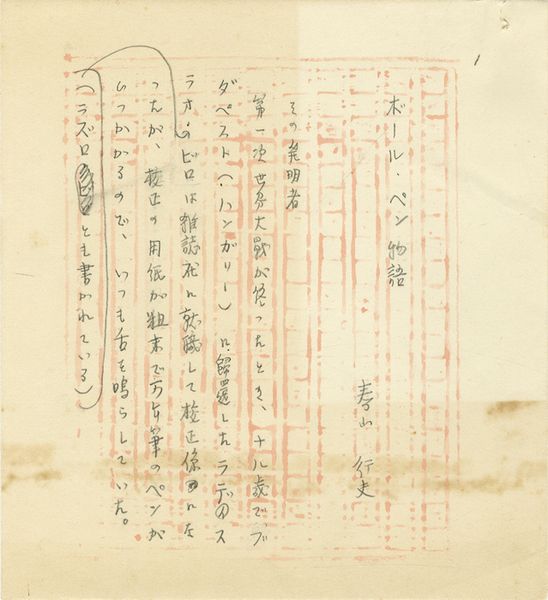 ボール・ペン物語
春山行夫
その発明者
第一次世界大戰が終つたとき、十八歳で、ブ
ダペスト(ハンガリー)に歸還したラディス
ラオ・ビロは雑誌社に就職して校正係にな
つたが、校正の用紙が粗末で万年筆のペンが
ひつかかるので、いつも舌を鳴らしていた。
(ラズロとも書かれている)